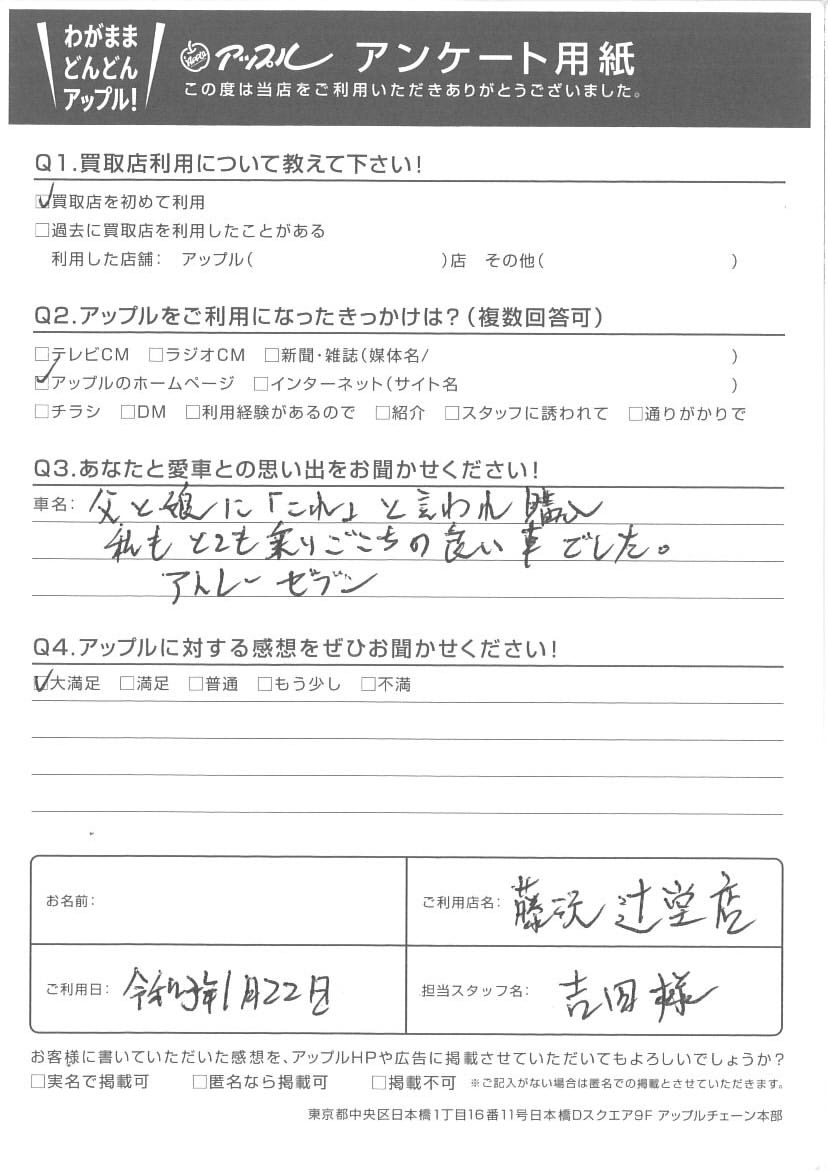 わがまま
どんどん
アップル!
Apple アップル アンケート用紙
この度は当店をご利用いただきありがとうございました。
Q1.買取店利用について教えて下さい!
☑買取店を初めて利用
□過去に買取店を利用したことがある
利用した店舗: アップル( )店 その他( )
Q2.アップルをご利用になったきっかけは?(複数回答可)
□テレビCM □ラジオCM □新聞・雑誌(媒体名/ )
☑アップルのホームページ □インターネット(サイト名 )
□チラシ □DM □利用経験があるので □紹介 □スタッフに誘われて □通りがかりで
Q3.あなたと愛車との思い出をお聞かせください!
車名: 父と娘に「これ」と言われ購入
私もとても乗りごこちの良い車でした。
アトレーゼブン
Q4.アップルに対する感想をぜひお聞かせください!
☑大満足 □満足 □普通 □もう少し □不満
お名前:
ご利用店名: 藤沢辻堂店
ご利用日: 令和 年1月22日
担当スタッフ名: 吉田様
お客様に書いていただいた感想を、アップルHPや広告に掲載させていただいてもよろしいでしょうか?
□実名で掲載可 □匿名なら掲載可 □掲載不可 ※ご記入がない場合は匿名での掲載とさせていただきます。
東京都中央区日本橋1丁目16番11号日本橋Dスクエア9F アップルチェーン本部